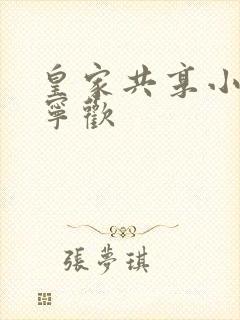 皇家共享小
寧歡
張夢琪